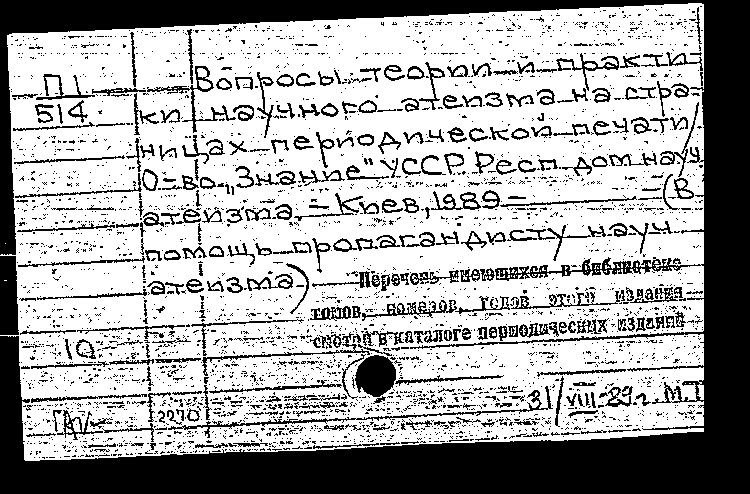 П1
514
Вопросы теории и практи-
ки научного атеизма на стра-
ницах периодической печати/
О-во „Знание" УССР. Респ. дом науч.
атеизма. – Киев, 1989 –      – (В
помощь пропагандисту науч.
атеизма)
Перечень имеющихся в библиотеке
томов, номеров, годов этого издания
смотри в каталоге периодических изданий
10
2270
31/VIII-89г. М.Т